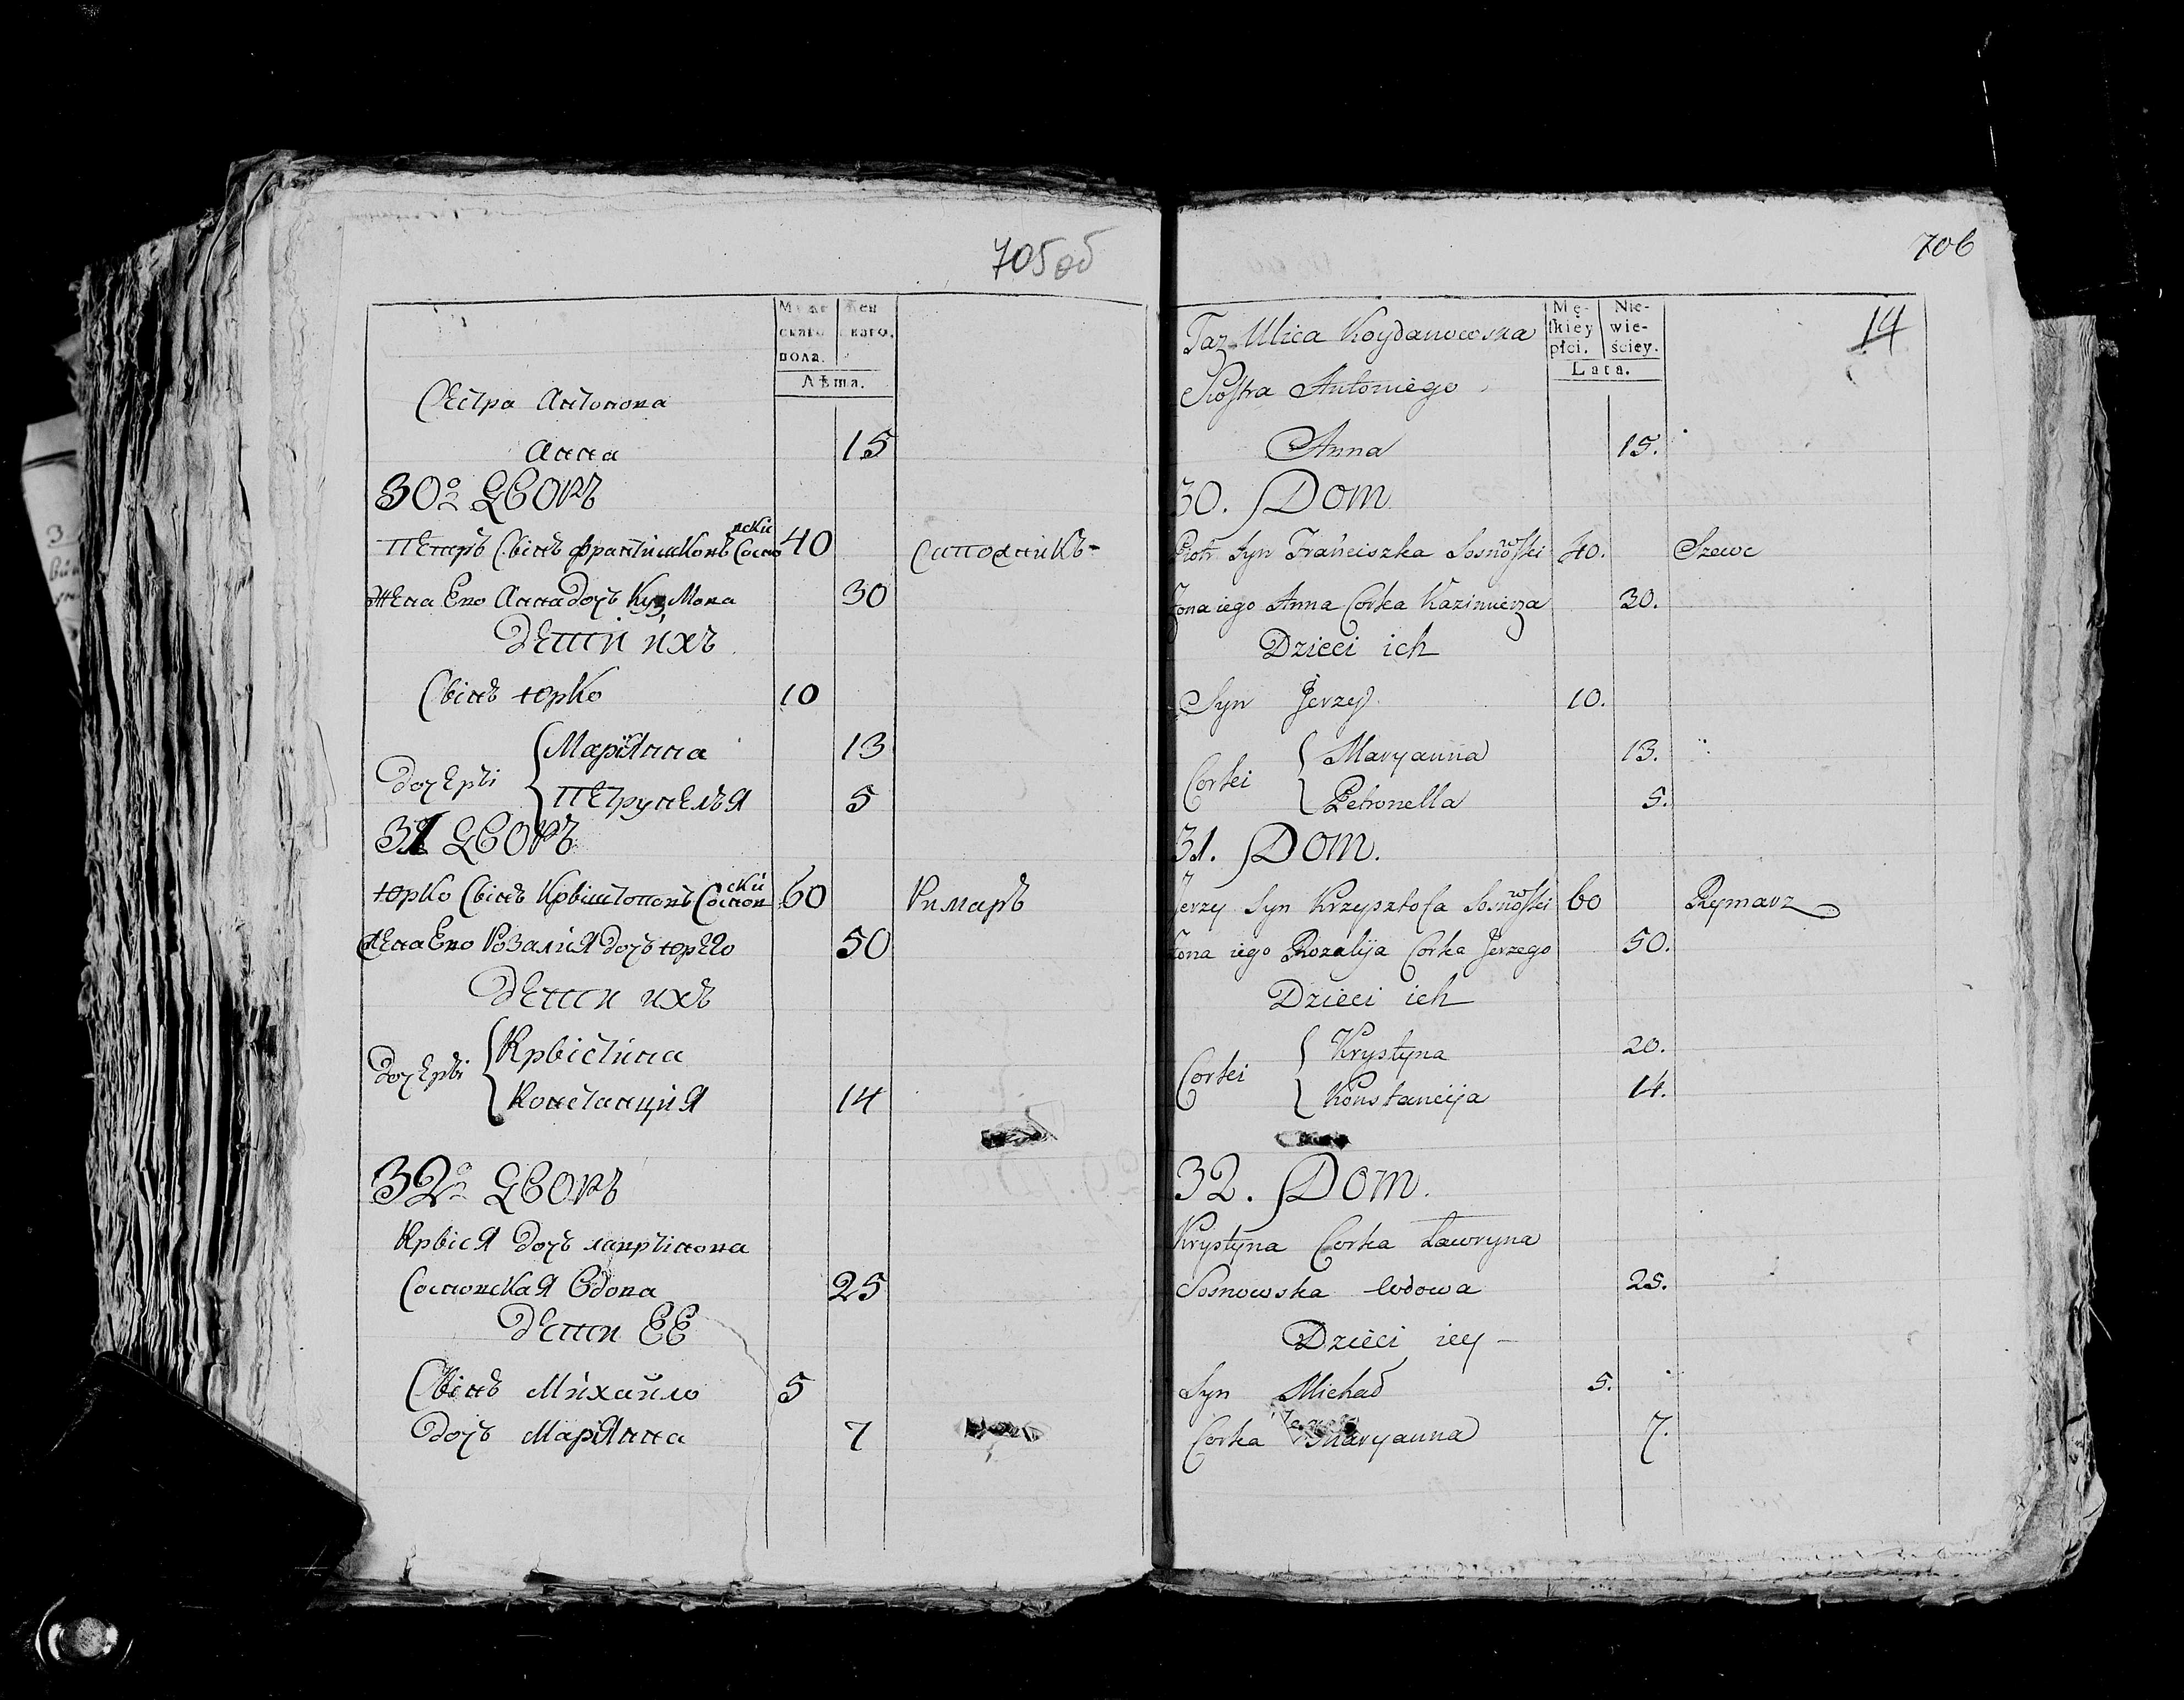 705об
Муже
скаго
пола.
Жен
скаго.
Лѣта.
Сестра Антонова
Анна 15
30й Дворъ
Петръ Сынъ Францишковъ Сосновски 40 Сапожникъ
Жена Его Анна дочь Кузмова 30
Дети ихъ
Сынъ Юрко 10
Дочеры
Марiянна 13
Петрунеля 5
31 Дворъ
Юрко Сынъ Крыштоповъ Сосновский 60 Римаръ
Жена Его Розалия дочь Юрего 50
Дети ихъ
Дочеры
Крыстина
Констанция 14
32й Дворъ
Крыся дочь лаврынова
Сосновская Вдова 25
Дети ЕЕ
Сынъ Михайло 5
Дочь Марiянна 7
706
14
Mę-
ſkiey
płci.
Nie-
wie-
ściey.
Lata.
Taz Ulica Koydanowska
Siostra Antoniego
Anna 15.
30. Dom
Piotr Syn Franciszka Sosnowſki 40. Szewc
Zona iego Anna Corka Kazimierza 30.
Dzieci ich
Syn Jerzey 10.
Corki
Maryanna 13.
Petronella 5.
31. Dom.
Jerzy Syn Krzysztofa Sosnowſki 60 Rymarz
Zona iego Rozalija Corka Jerzego 50.
Dzieci ich
Corki
Krystyna 20.
Konstancija 14.
32. Dom.
Krystyna Corka Ławryna
Sosnowska wdowa 25.
Dzieci iey
Syn Michał 5.
Corka Maryanna 7.